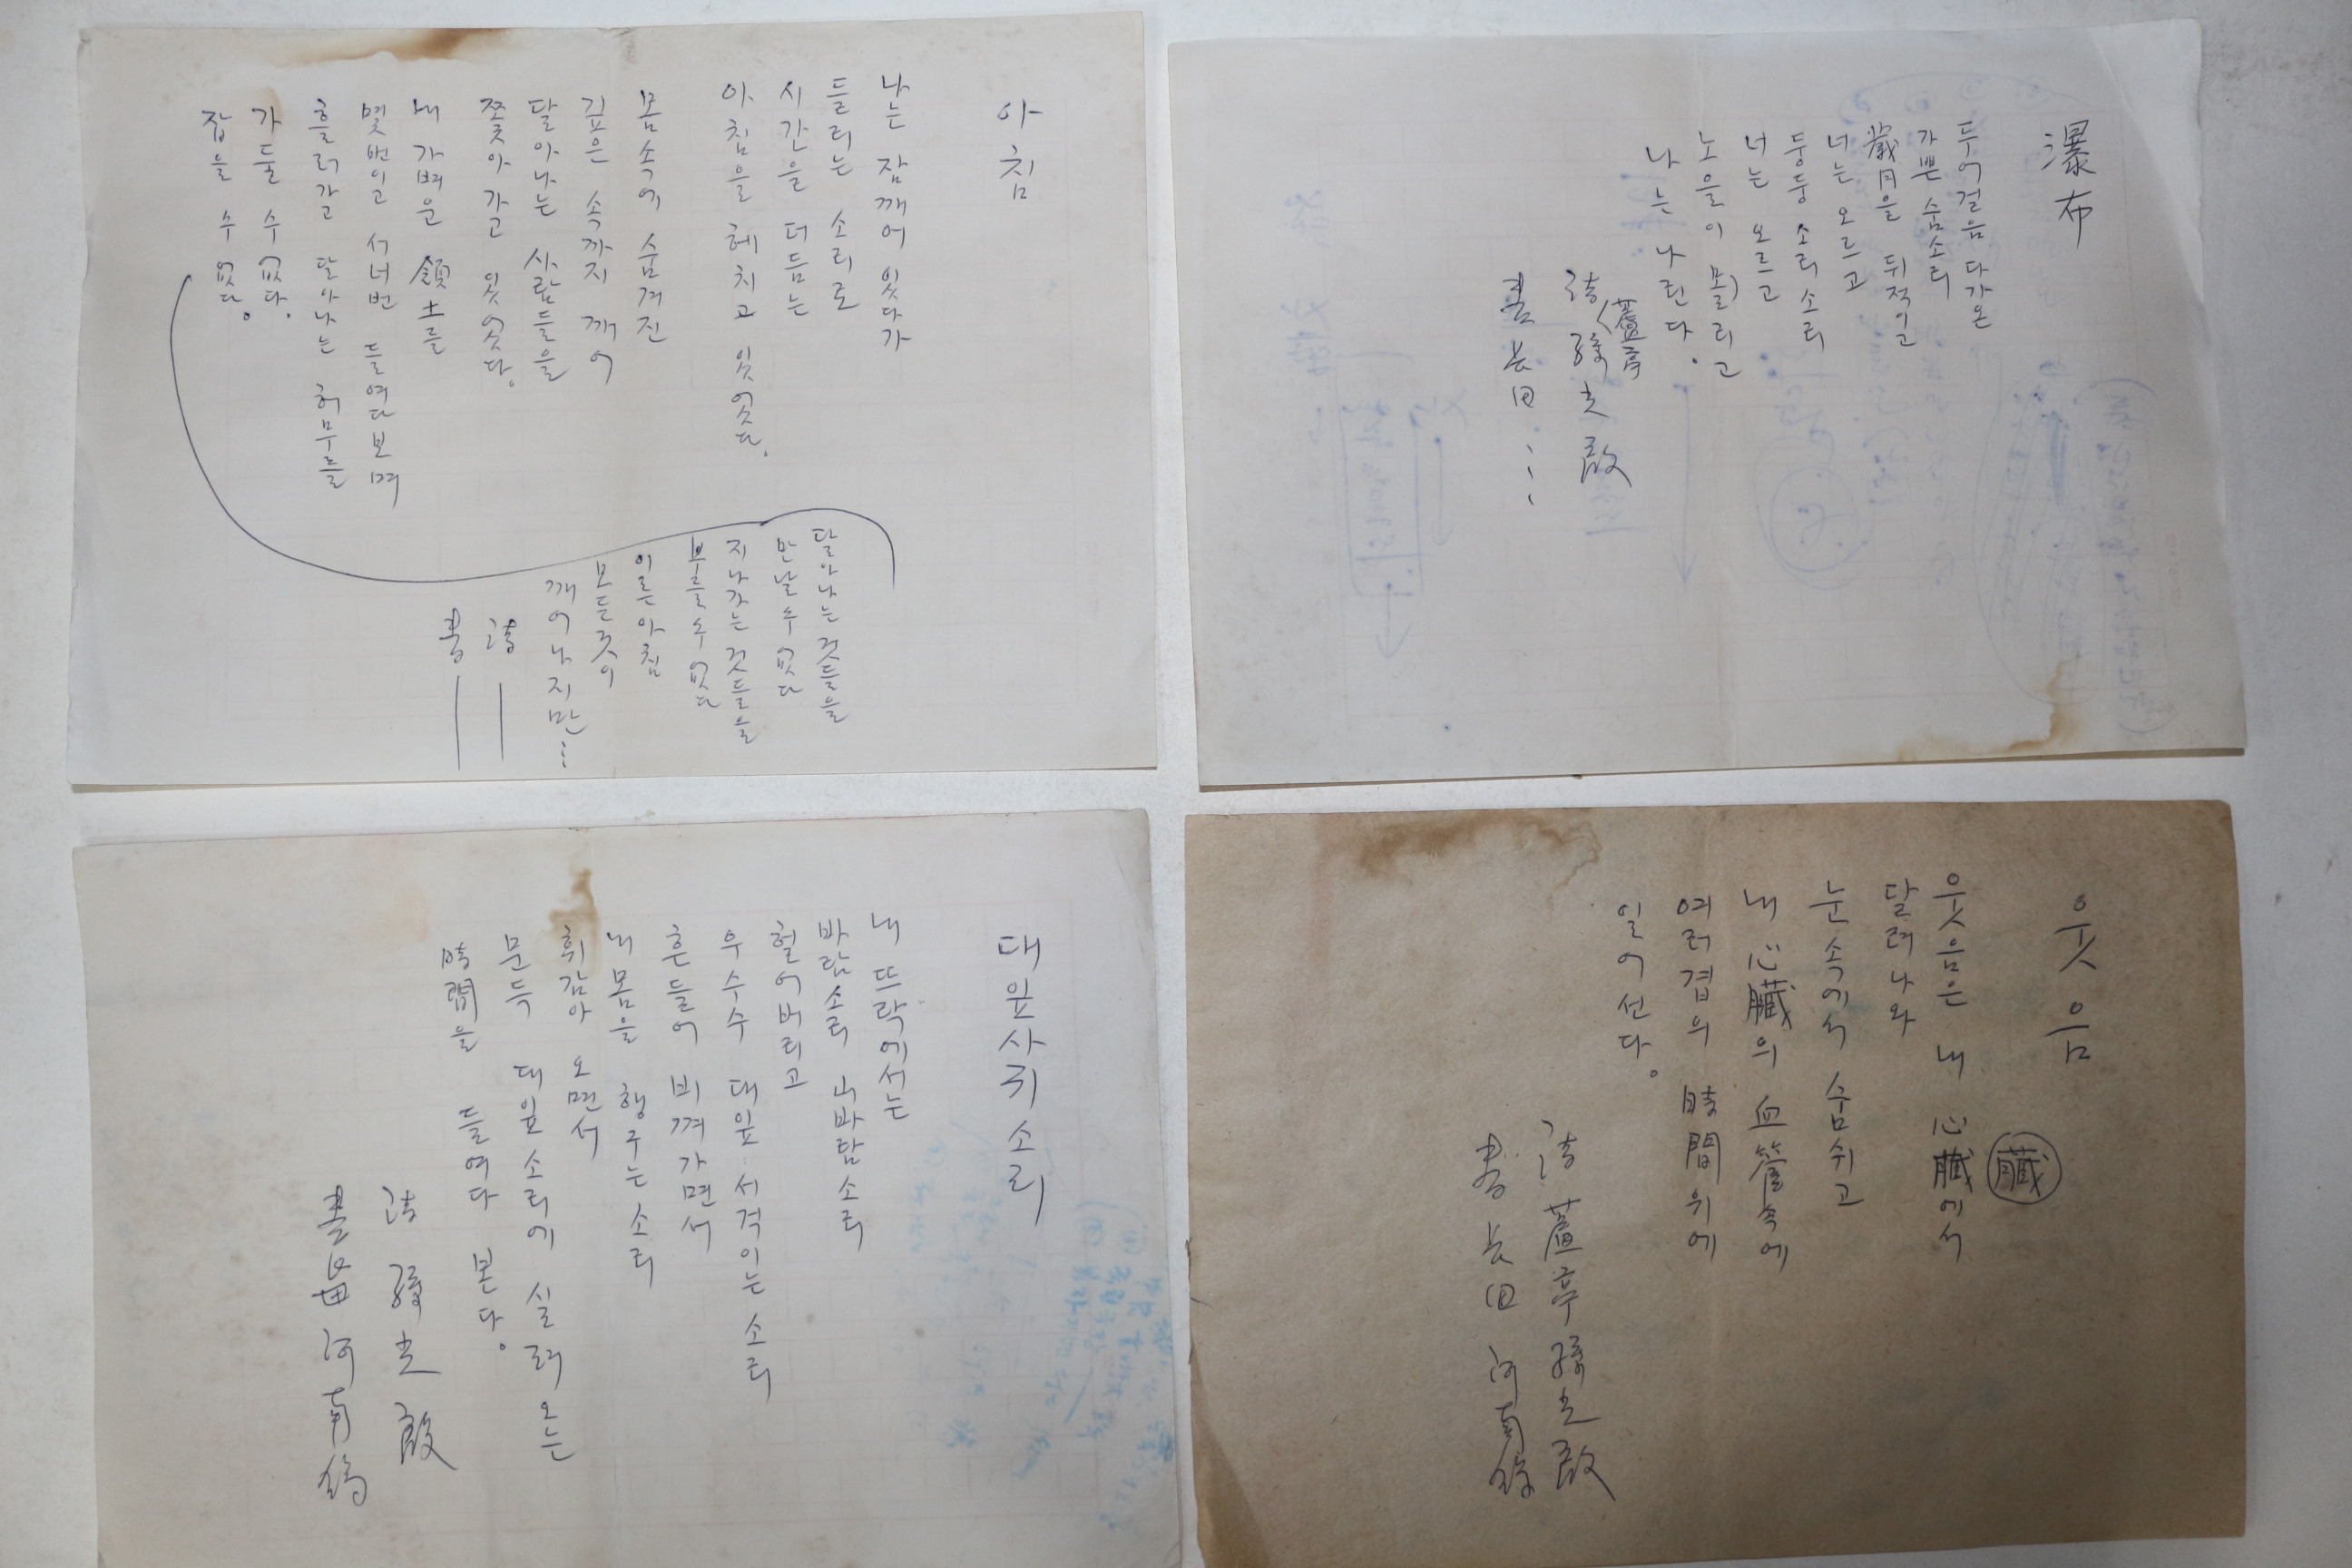 아침
나는 잠깨어 있다가
들리는 소리로
시간을 더듬는
아침을 헤치고 있었다.
몸속에 숨겨진
깊은 속까지 깨어
달아나는 사람들을
쫓아가고 있었다.
내 가벼운 領土를
몇번이고 서너번 들여다보며
흘러가고 달아나는 허무를
가둘 수 없다.
잡을 수 없다.
달아나는 것들을
만날 수 없다
지나가는 것들을
부를 수 없다
이른 아침
모든 것이
깨어나지만…
詩
書
瀑布
두어걸음 다가온
가쁜 숨소리
歲月을 뒤적이고
너는 오르고
둥둥 소리 소리
너는 오르고
노을이 몰리고
나는 나린다.
詩 孫光殷
書 長田…
대잎사귀소리
내 뜨락에서는
바람소리 山바람소리
헐어버리고
우수수 대잎 서걱이는 소리
흔들어 비껴가면서
내 몸을 헹구는 소리
휘감아 오면서
문득 대잎소리에 실려오는
時間을 들여다 본다.
詩 孫光殷
書 河南鎬
웃음
웃음은 내 心臟에서
臟
달려나와
눈 속에서 숨쉬고
내 心臟의 血管속에
여러겹의 時間위에
일어선다.
詩 孫光殷
書 長田 河南鎬